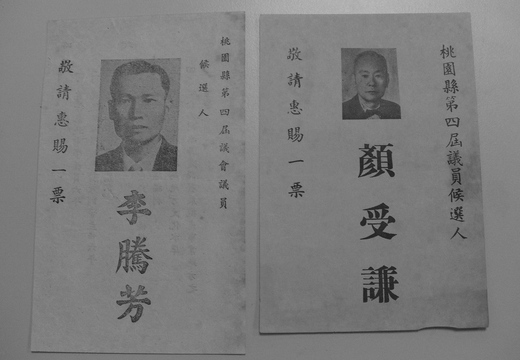 桃園縣第四屆議會議員
候選人
李騰芳
敬請惠賜一票
桃園縣第四屆議員候選人
顏受謙
敬請惠賜一票